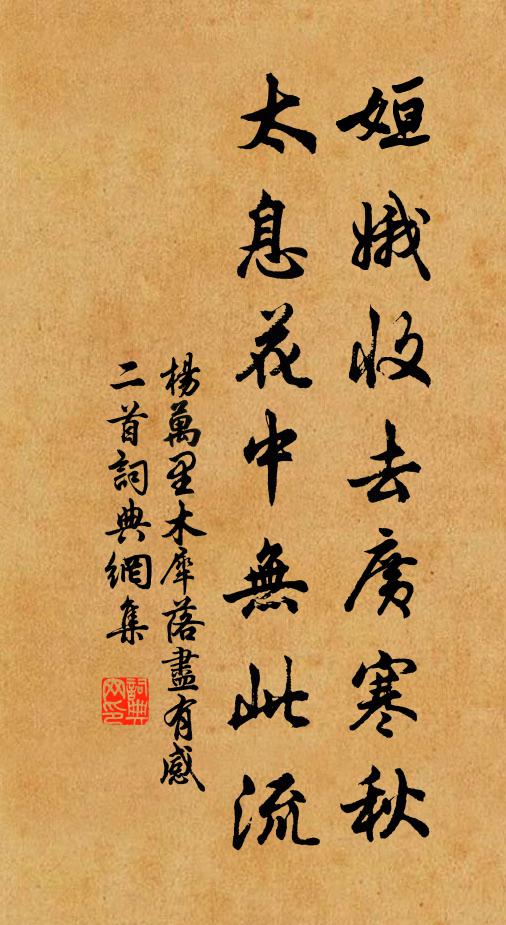 姮娥收去廣寒秋
太息花中無此流
楊萬里木犀落盡有感
二首詞典網集
詞典網印